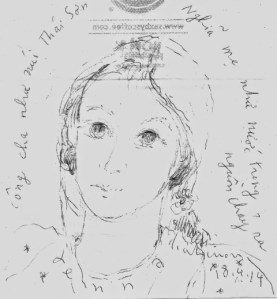 www.saxbyscoffee.com
Công cha như núi Thái Sơn
Nghĩa mẹ như nước trong ra
nguồn chảy
8.4.14